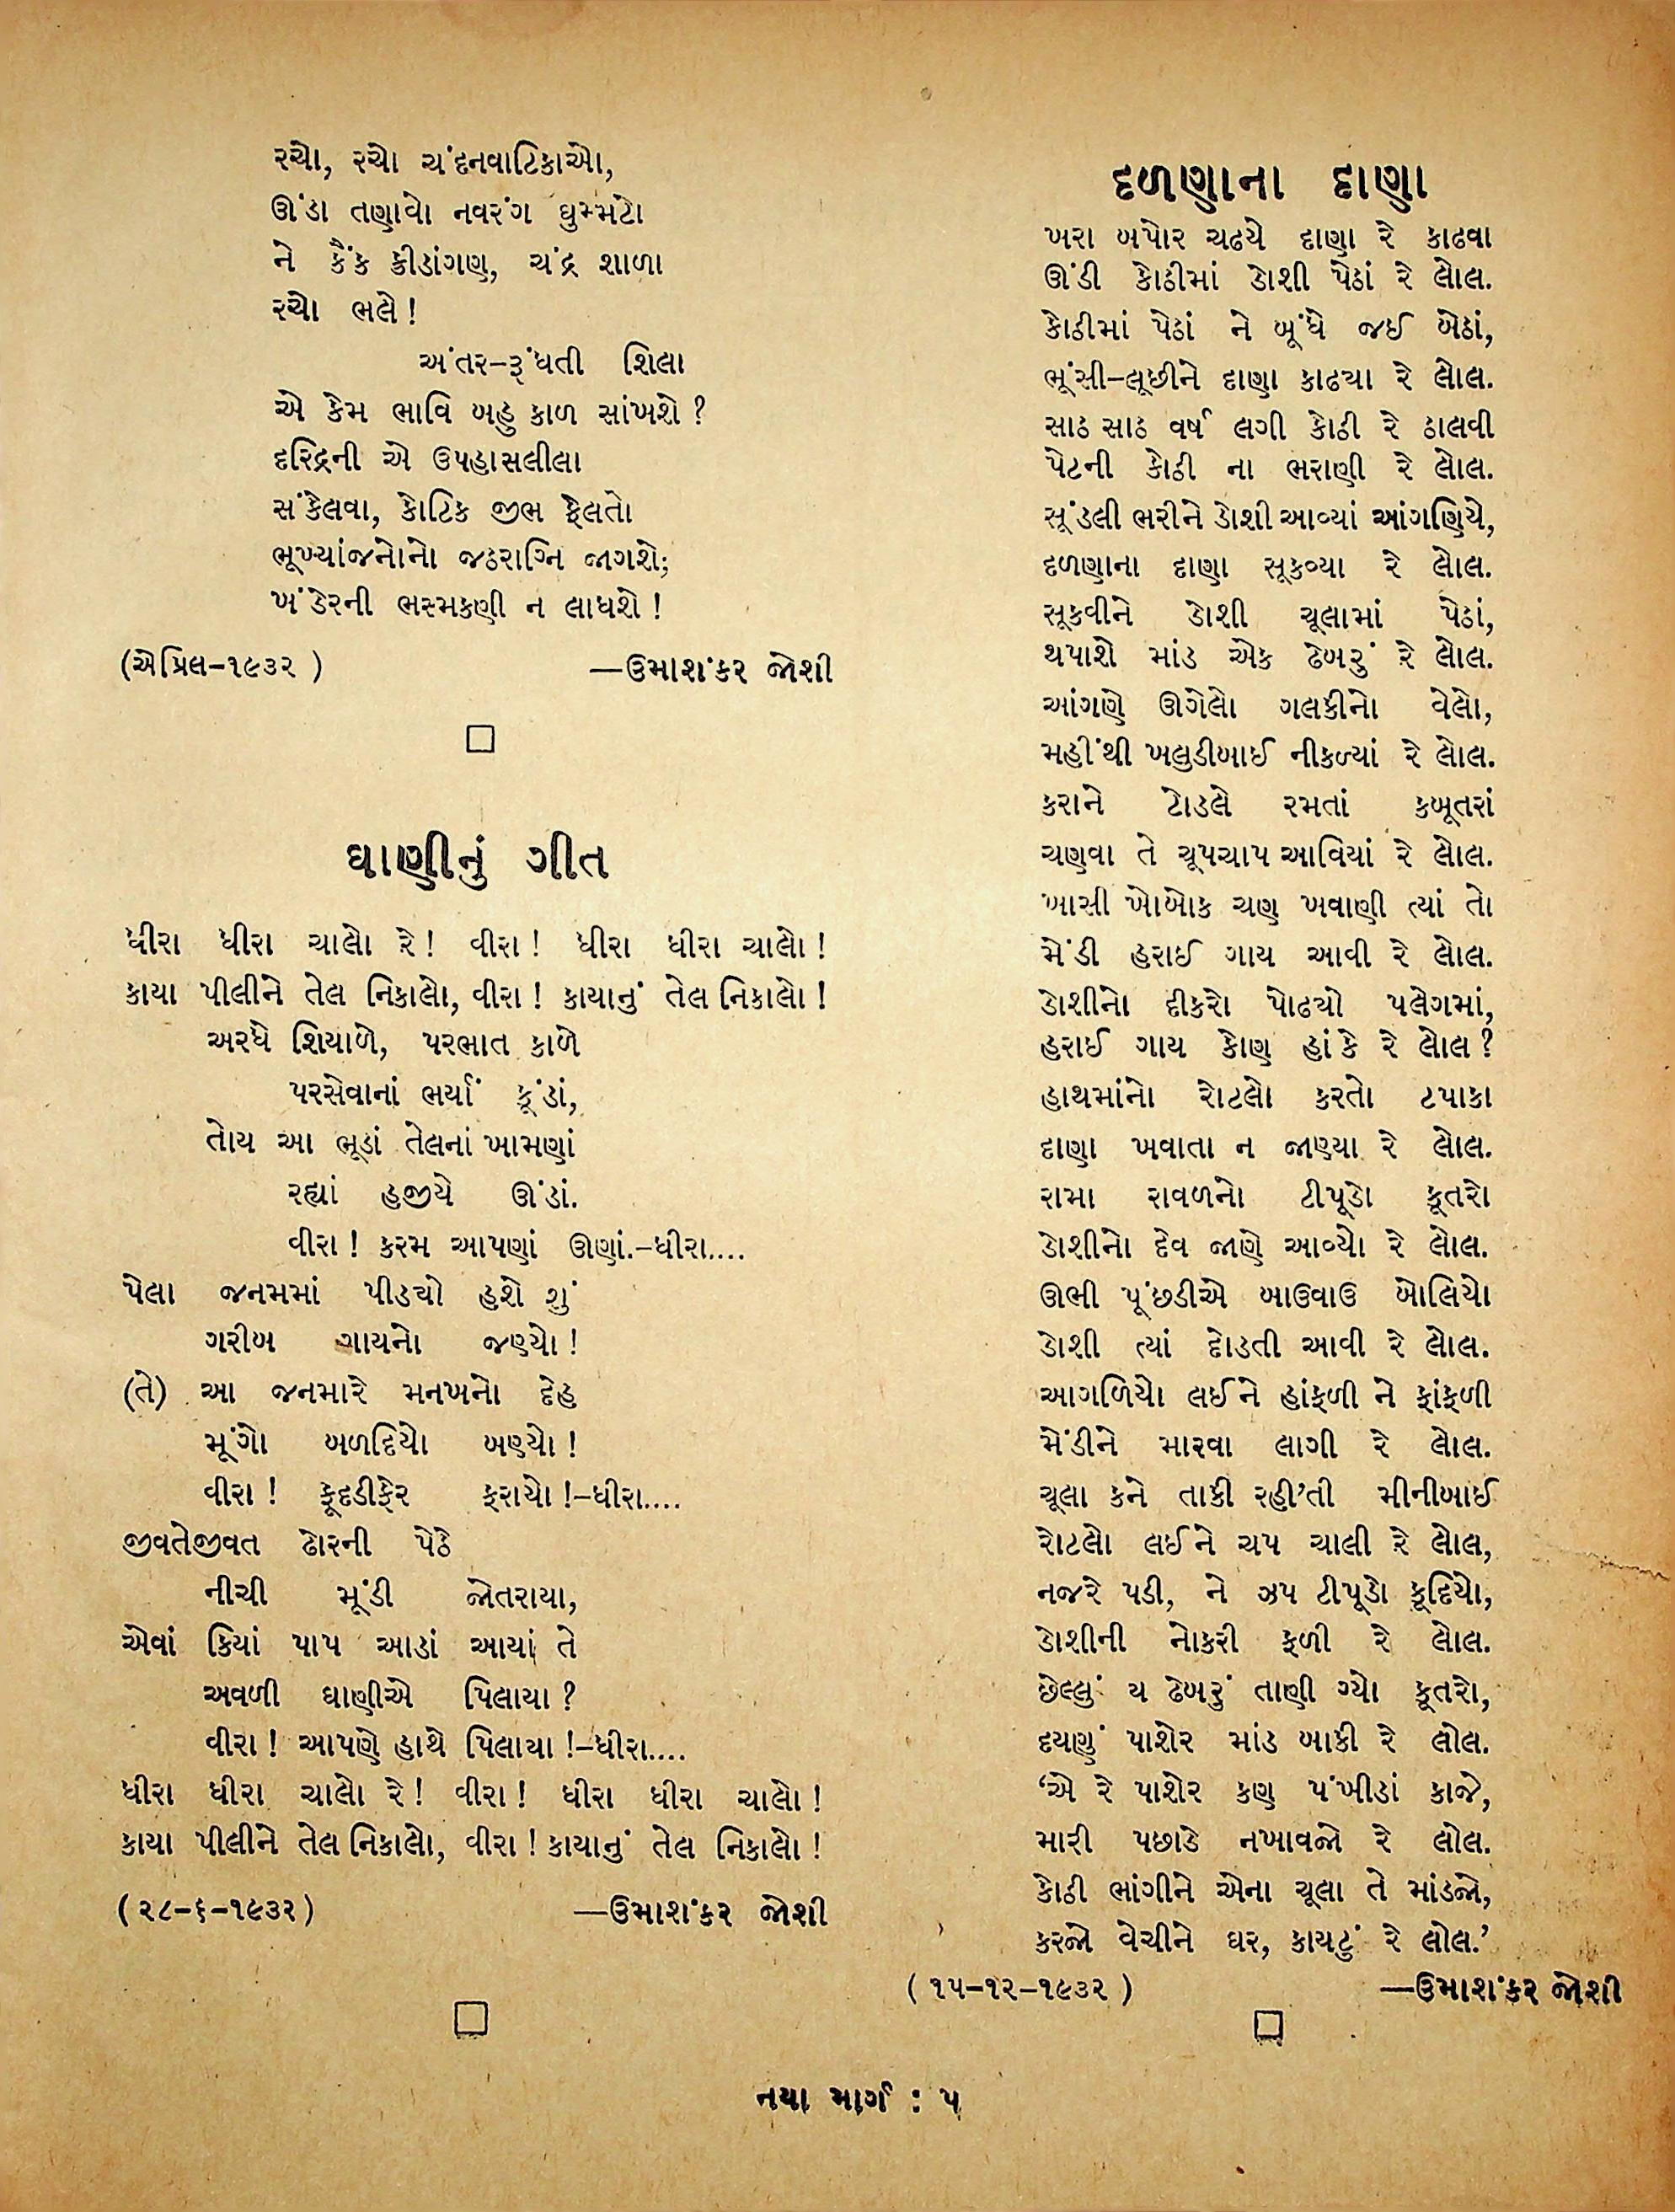 રચો, રચો ચંદનવાટિકાઓ,
ઊંડા તણાવો નવરંગ ઘુમ્મટો
ને કૈંક ક્રીડાંગણ, ચંદ્ર શાળા
રચો ભલે !
અંતર-રૂંધતી શિલા
એ કેમ ભાવિ બહુ કાળ સાંખશે ?
દરિદ્રની એ ઉપહાસલીલા
સંકેલવા, કોટિક જીભ ફેલતો
ભૂખ્યાંજનોનો જઠરાગ્નિ જાગશે;
ખંડેરની ભસ્મકણી ન લાધશે !
(એપ્રિલ-૧૯૩૨ ) —ઉમાશંકર જોશી
ઘાણીનું ગીત
ધીરા ધીરા ચાલો રે! વીરા! ધીરા ધીરા ચાલો !
કાયા પીલીને તેલ નિકાલો, વીરા! કાયાનું તેલ નિકાલો !
અરધે શિયાળે, પરભાત કાળે
પરસેવાનાં ભર્યાં કૂંડાં,
તોય આ ભૂડાં તેલનાં ખામણાં
રહ્યાં હજીયે ઊંડાં.
વીરા! કરમ આપણાં ઊણાં.-ધીરા....
પેલા જનમમાં પીડ્યો હશે શું
ગરીબ ગાયનો જણ્યો !
(તે) આ જનમારે મનખનો દેહ
મૂંગો બળદિયો બણ્યો !
વીરા ! ફૂદડીફેર ફરાયો !-ધીરા....
જીવતેજીવત ઢોરની પેઠે
નીચી મૂંડી જોતરાયા,
એવાં કિયાં પાપ આડાં આયાં તે
અવળી ઘાણીએ પિલાયા ?
વીરા ! આપણે હાથે પિલાયા !-ધીરા....
ધીરા ધીરા ચાલો રે! વીરા! ધીરા ધીરા ચાલો !
કાયા પીલીને તેલ નિકાલો, વીરા ! કાયાનું તેલ નિકાલો !
( ૨૮-૬-૧૯૩૨) —ઉમાશંકર જોશી
દળણાના દાણા
ખરા બપોર ચઢયે દાણા રે કાઢવા
ઊંડી કોઠીમાં ડોશી પેઠાં રે લોલ.
કોઠીમાં પેઠાં ને બૂંધે જઈ બેઠાં,
ભૂંસી-લૂછીને દાણા કાઢયા રે લોલ.
સાઠ સાઠ વર્ષ લગી કોઠી રે ઠાલવી
પેટની કોઠી ના ભરાણી રે લોલ.
સૂંડલી ભરીને ડોશી આવ્યાં આંગણિયે,
દળણાના દાણા સૂકવ્યા રે લોલ.
સૂકવીને ડોશી ચૂલામાં પેઠાં,
થપાશે માંડ એક ઢેબરું રે લોલ.
આંગણે ઊગેલો ગલકીનો વેલો,
મહીંથી ખલુડીબાઈ નીકળ્યાં રે લોલ.
કરાને ટોડલે રમતાં કબૂતરાં
ચણવા તે ચૂપચાપ આવિયાં રે લોલ.
ખાસી ખોબોક ચણ ખવાણી ત્યાં તો
મેંડી હરાઈ ગાય આવી રે લોલ.
ડોશીનો દીકરો પોઢયો પલેગમાં,
હરાઈ ગાય કોણ હાંકે રે લોલ ?
હાથમાંનો રોટલો કરતો ટપાકા
દાણા ખવાતા ન જાણ્યા રે લોલ.
રામા રાવળનો ટીપૂડો કૂતરો
ડોશીનો દેવ જાણે આવ્યો રે લોલ.
ઊભી પૂંછડીએ ખાઉવાઉ બોલિયો
ડોશી ત્યાં દોડતી આવી રે લોલ.
આગળિયો લઈને હાંફળી ને ફાંફળી
મેંડીને મારવા લાગી રે લોલ.
ચૂલા કને તાકી રહી'તી મીનીબાઈ
રોટલો લઈને ચપ ચાલી રે લોલ,
નજરે પડી, ને ઝપ ટીપૂડો કૂદિયો,
ડોશીની નોકરી ફળી રે લોલ.
છેલ્લું ય ઢેબરું તાણી ગ્યો કૂતરો,
દયણું પાશેર માંડ બાકી રે લોલ.
'એ રે પાશેર કણ પંખીડાં કાજે,
મારી પછાડે નખાવજો રે લોલ.
કોઠી ભાંગીને એના ચૂલા તે માંડજો,
કરજો વેચીને ઘર, કાયટું રે લોલ.'
( ૧૫-૧૨-૧૯૩૨ ) —ઉમાશંકર જોશી
નયા માર્ગ : ૫